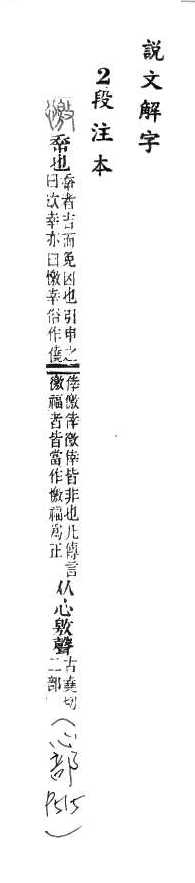 説文解字
2段注本
憿
幸也
幸者吉而免凶也引申之
曰欥幸亦曰憿幸俗作僥
倖儌倖徼倖皆非也凡傳言
徼福者皆當作憿福爲正
从心敫聲
古堯切
二部
(心部
P515)